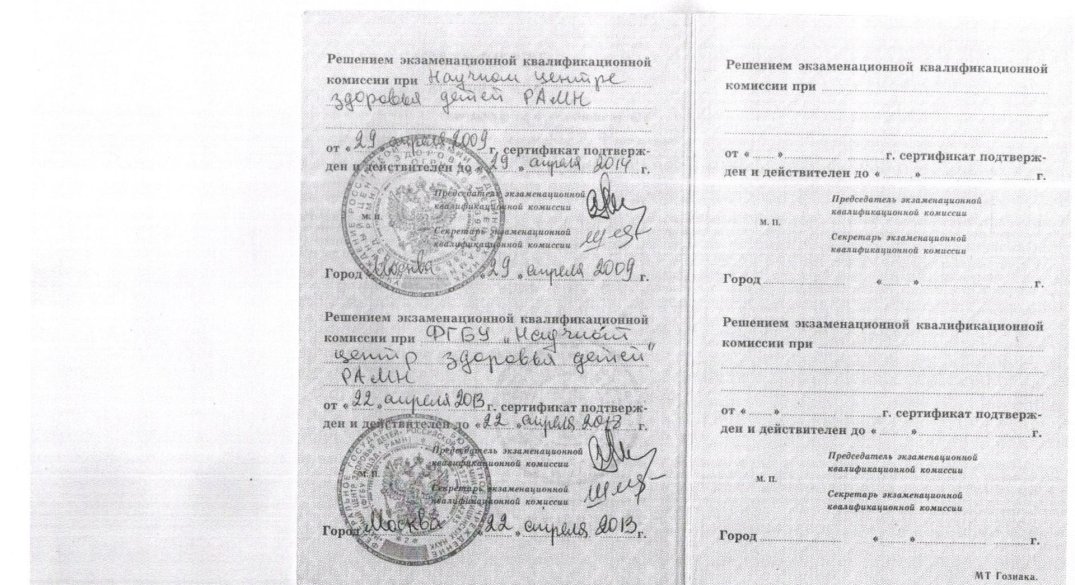 Решением экзаменационной квалификационной
комиссии при Научном центре
здоровья детей РАМН
от « 29 » апреля 2009 г. сертификат подтверж-
ден и действителен до « 29 » апреля 2014 г.
Председатель экзаменационной
квалификационной комиссии
м. п.
Секретарь экзаменационной
квалификационной комиссии
Город Москва « 29 » апреля 2009 г.
Решением экзаменационной квалификационной
комиссии при ФГБУ „Научный
центр здоровья детей"
РАМН
от « 22 » апреля 2013 г. сертификат подтверж-
ден и действителен до « 22 » апреля 2018 г.
Председатель экзаменационной
квалификационной комиссии
м. п.
Секретарь экзаменационной
квалификационной комиссии
Город Москва « 22 » апреля 2013 г.
Решением экзаменационной квалификационной
комиссии при
от « » г. сертификат подтверж-
ден и действителен до « » г.
Председатель экзаменационной
квалификационной комиссии
м. п.
Секретарь экзаменационной
квалификационной комиссии
Город « » г.
Решением экзаменационной квалификационной
комиссии при
от « » г. сертификат подтверж-
ден и действителен до « » г.
Председатель экзаменационной
квалификационной комиссии
м. п.
Секретарь экзаменационной
квалификационной комиссии
Город « » г.
МТ Гознака.